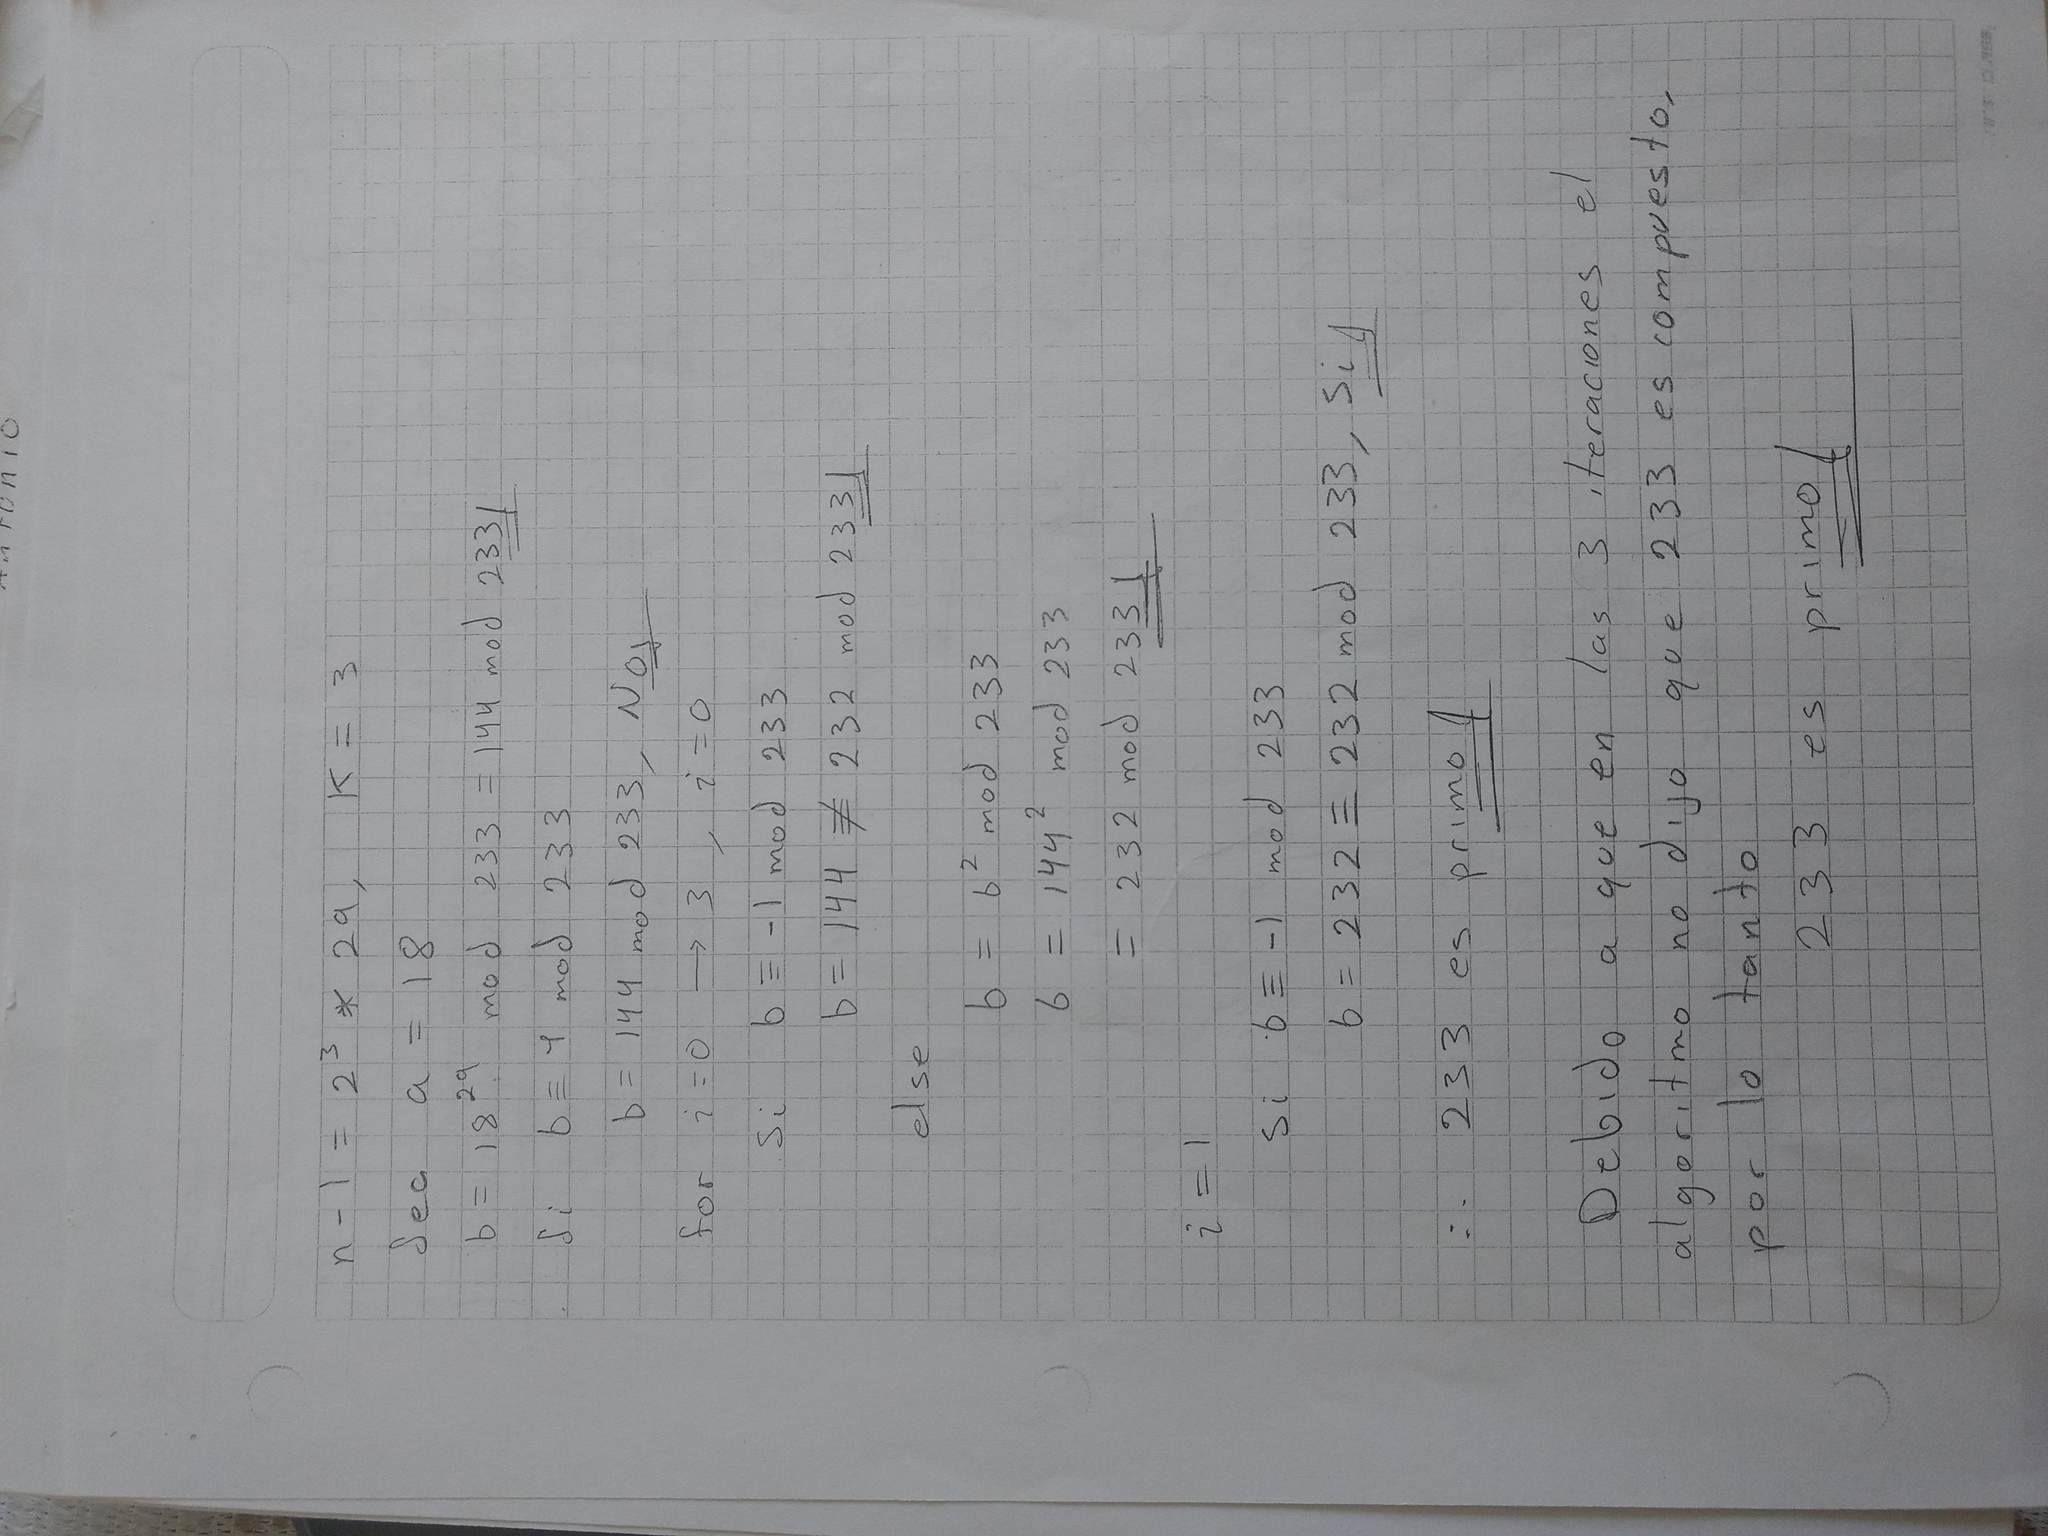 Antonio
n - 1 = 2³ * 29, K = 3
Sea a = 18
b = 18²⁹ mod 233 = 144 mod 233
Si b ≡ 1 mod 233
b = 144 mod 233, No
for i = 0 → 3, i = 0
Si b ≡ -1 mod 233
b = 144 ≢ 232 mod 233
else
b = b² mod 233
b = 144² mod 233
= 232 mod 233
i = 1
si b ≡ -1 mod 233
b = 232 ≡ 232 mod 233, Si
∴ 233 es primo
Debido a que en las 3 iteraciones el
algoritmo no dijo que 233 es compuesto,
por lo tanto
233 es primo